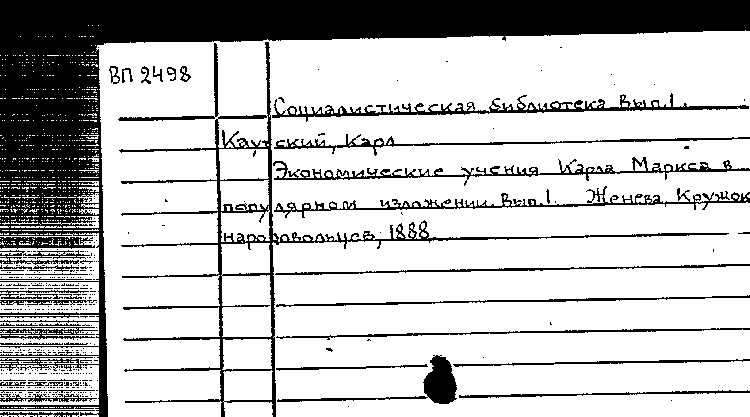 ВП 2498
Социалистическая библиотека Вып.1.
Каутский, Карл
Экономические учения Карла Маркса в
популярном изложении. Вып.1. Женева, Кружок
народовольцев, 1888